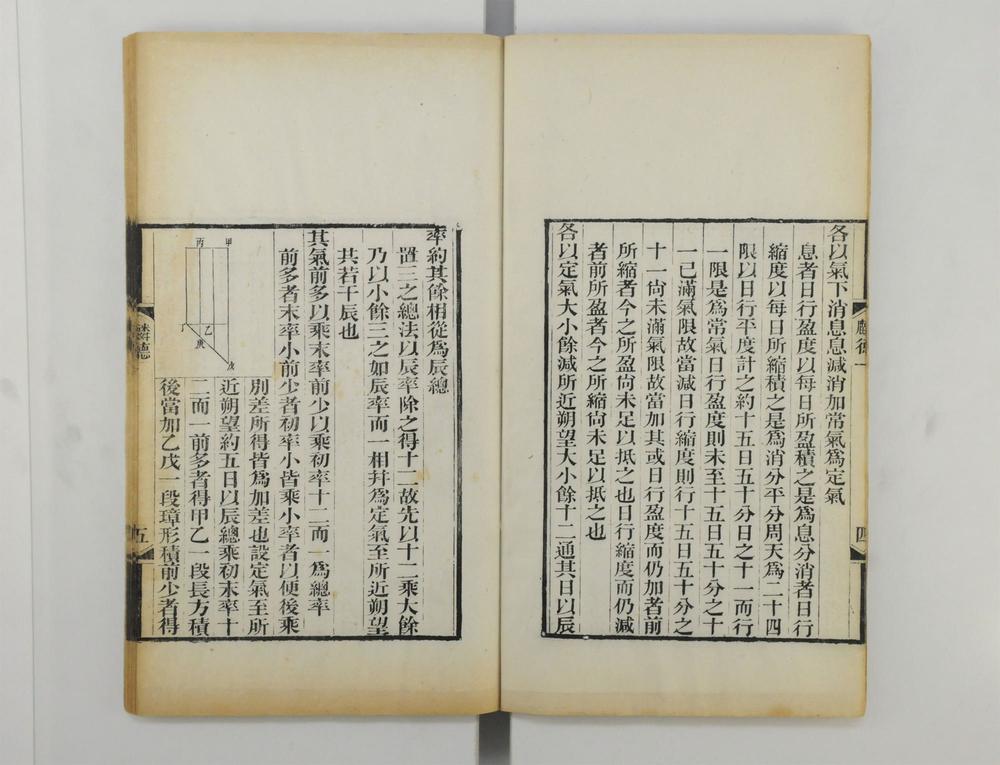 各以氣下消息息減消加常氣爲定氣
息者日行盈度以每日所盈積之是爲息分消者日行
縮度以每日所縮積之是爲消分平分周天爲二十四
限以日行平度計之約十五日五十分日之十一而行
一限是爲常氣日行盈度則未至十五日五十分之十
一已滿氣限故當減日行縮度則行十五日五十分之
十一尙未滿氣限故當加其或日行盈度而仍加者前
所縮者今之所盈尙未足以抵之也日行縮度而仍減
者前所盈者今之所縮尙未足以抵之也
各以定氣大小餘減所近朔望大小餘十二通其日以辰
四
率約其餘相從爲辰總
置三之總法以辰率除之得十二故先以十二乘大餘
乃以小餘三之如辰率而一相幷爲定氣至所近朔望
其若干辰也
其氣前多以乘末率前少以乘初率十二而一爲總率
前多者末率小前少者初率小皆乘小率者以便後乘
別差所得皆爲加差也設定氣至所
近朔望約五日以辰總乘初末率十
二而一前多者得甲乙一段長方積
後當加乙戊一段璋形積前少者得
甲
丙
乙
丁
庚
戊
麟德
五